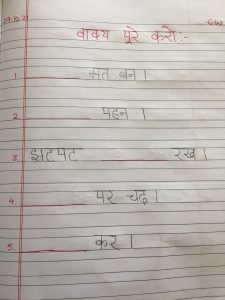 वाक्य पूरे करो :-
1. ________ मत बन ।
2. ________ पहन ।
3. झटपट ________ रख ।
4. ________ पर चढ़ ।
5. ________ कर ।